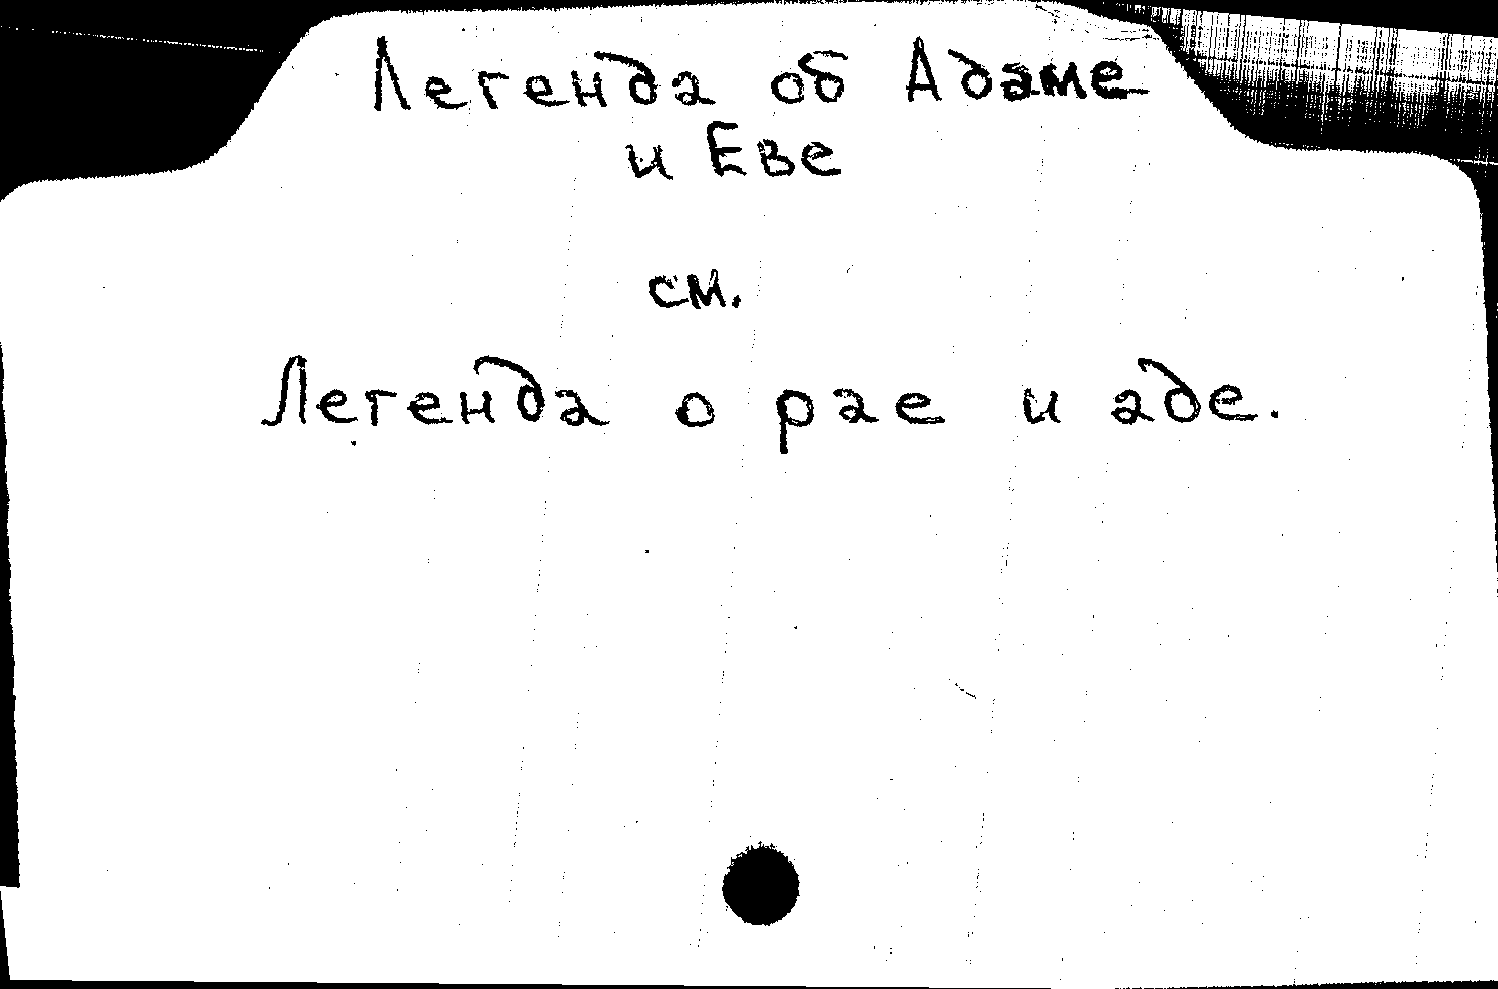 Легенда об Адаме
и Еве
см.
Легенда о рае и аде.